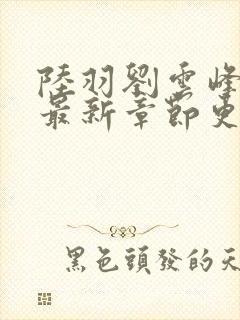 陸羽劉雲峰
最新章節更
黑色頭發的天